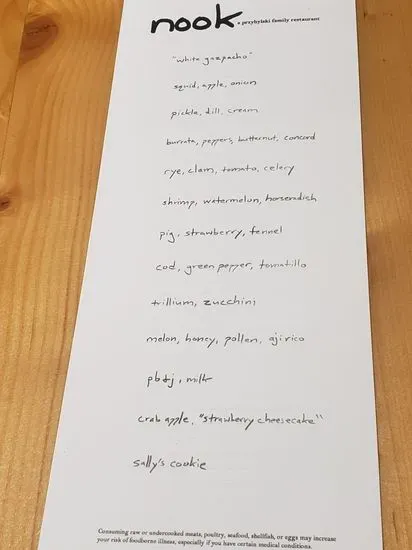 nook
a przybylski family restaurant
"white gazpacho"
squid, apple, onion
pickle, dill, cream
burrata, peppers, butternut, concord
rye, clam, tomato, celery
shrimp, watermelon, horseradish
pig, strawberry, fennel
cod, green pepper, tomatillo
trillium, zucchini
melon, honey, pollen, aji rico
pb&j, milk
crab apple, "strawberry cheesecake"
sally's cookie
Consuming raw or undercooked meats, poultry, seafood, shellfish, or eggs may increase
your risk of foodborne illness, especially if you have certain medical conditions.